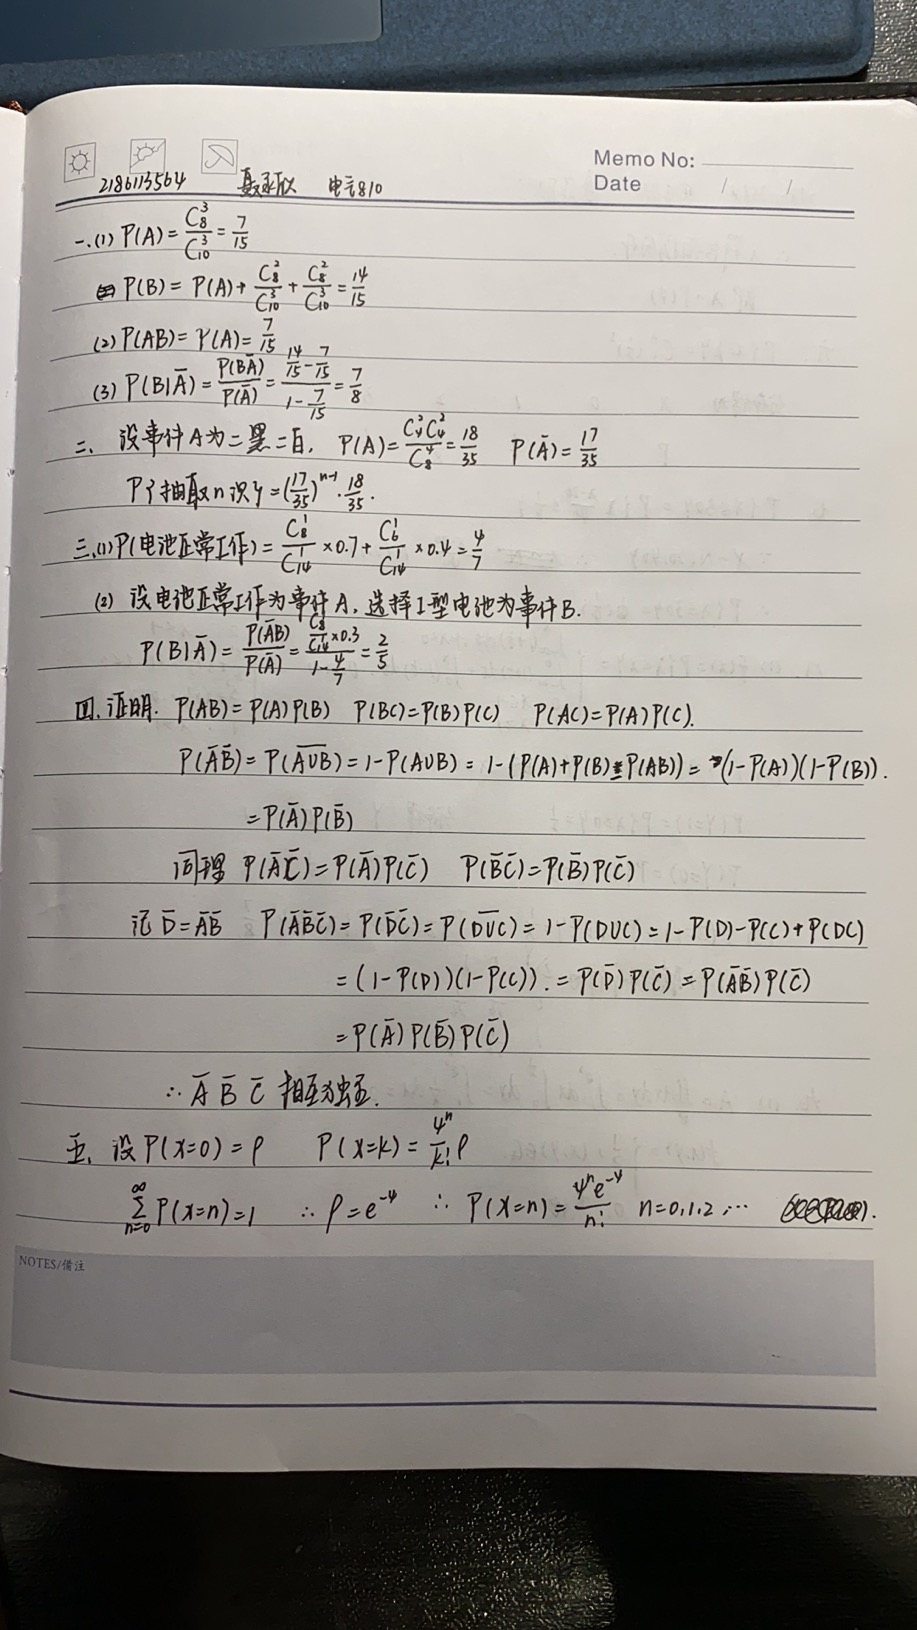 Memo No:
Date / /
2186113564 电气810
一、(1) P(A) = C₈³/C₁₀³ = 7/15
P(B) = P(A) + C₈²/C₁₀³ + C₈²/C₁₀³ = 14/15
(2) P(AB) = P(A) = 7/15
(3) P(B|Ā) = P(BĀ)/P(Ā) = (14/15 - 7/15)/(1 - 7/15) = 7/8
二、设事件A为二黑二白. P(A) = C₄²C₄²/C₈⁴ = 18/35 P(Ā) = 17/35
P{抽取n次} = (17/35)ⁿ⁻¹ · 18/35.
三、(1) P(电池正常工作) = C₈¹/C₁₄¹ × 0.7 + C₆¹/C₁₄¹ × 0.4 = 4/7
(2) 设电池正常工作为事件A, 选择I型电池为事件B.
P(B|Ā) = P(ĀB)/P(Ā) = (C₈¹/C₁₄¹ × 0.3)/(1 - 4/7) = 2/5
四. 证明. P(AB) = P(A)P(B) P(BC) = P(B)P(C) P(AC) = P(A)P(C).
P(ĀB̄) = P(A̅∪̅B̅) = 1 - P(A∪B) = 1 - (P(A) + P(B) - P(AB)) = (1 - P(A))(1 - P(B)).
= P(Ā)P(B̄)
同理 P(ĀC̄) = P(Ā)P(C̄) P(B̄C̄) = P(B̄)P(C̄)
记 D̄ = ĀB̄ P(ĀB̄C̄) = P(D̄C̄) = P(D̅∪̅C̅) = 1 - P(D∪C) = 1 - P(D) - P(C) + P(DC)
= (1 - P(D))(1 - P(C)). = P(D̄)P(C̄) = P(ĀB̄)P(C̄)
= P(Ā)P(B̄)P(C̄)
∴ Ā B̄ C̄ 相互独立.
五、设 P(x=0) = p P(x=k) = 4ⁿ/k! p
∑_{n=0}^{∞} P(x=n) = 1 ∴ p = e⁻⁴ ∴ P(x=n) = 4ⁿe⁻⁴/n! n=0,1,2,…
NOTES/备注